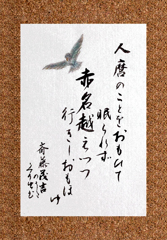 人麿のことをおもひて
眠られず
赤名越えつつ
行きしおもほ
ゆ
斎藤茂吉